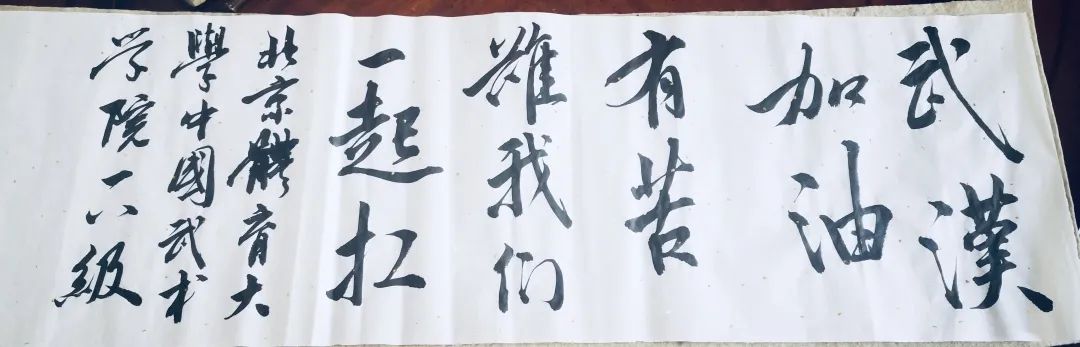 武漢
加油
有苦
難我们
一起扛
北京體育大
學中國武术
学院一八級